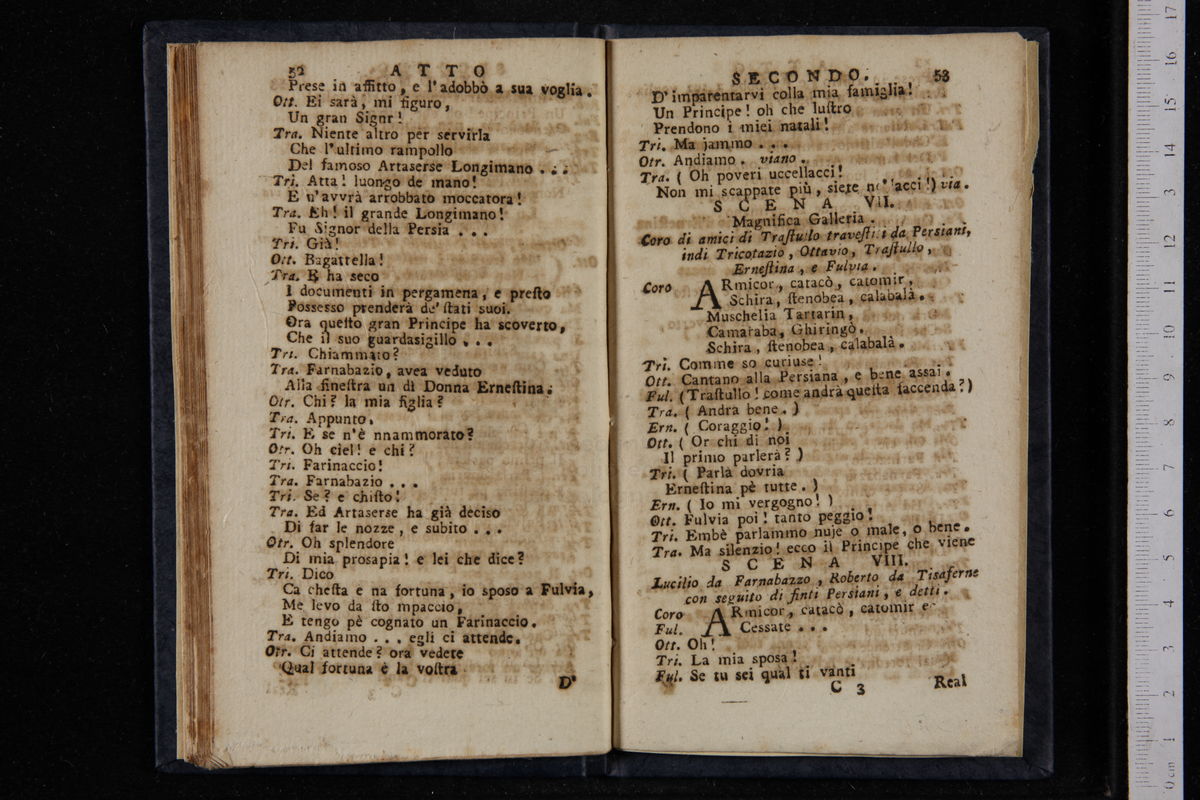 52 ATTO
Prese in affitto, e l'adobbò a sua voglia.
Ott. Ei sarà, mi figuro,
Un gran Signr!
Tra. Niente altro per servirla
Che l'ultimo rampollo
Del famoso Artaserse Longimano . . .
Tri. Atta! luongo de mano!
E n'avvrà arrobbato moccatora!
Tra. Eh! il grande Longimano!
Fu Signor della Persia . . .
Tri. Già!
Ott. Bagattella!
Tra. E ha seco
I documenti in pergamena, e preſto
Possesso prenderà de' ſtati suoi.
Ora queſto gran Principe ha scoverto,
Che il suo guardasigillo . . .
Tri. Chiammato?
Tra. Farnabazio, avea veduto
Alla fineſtra un dì Donna Erneſtina.
Otr. Chi? la mia figlia?
Tra. Appunto.
Tri. E se n'è nnammorato?
Otr. Oh ciel! e chi?
Tri. Farinaccio!
Tra. Farnabazio . . .
Tri. Se? e chiſto!
Tra. Ed Artaserse ha già deciso
Di far le nozze, e subito . . .
Otr. Oh splendore
Di mia prosapia! e lei che dice?
Tri. Dico
Ca cheſta e na fortuna, io sposo a Fulvia,
Me levo da ſto mpaccio,
E tengo pè cognato un Farinaccio.
Tra. Andiamo . . . egli ci attende.
Otr. Ci attende? ora vedete
Qual fortuna è la voſtra
D'
SECONDO. 53
D'imparentarvi colla mia famiglia!
Un Principe! oh che luſtro
Prendono i miei natali!
Tri. Ma jammo . . .
Otr. Andiamo. viano.
Tra. ( Oh poveri uccellacci!
Non mi scappate più, siete acci!) via.
SCENA VII.
Magnifica Galleria.
Coro di amici di Traſtullo traveſtiti da Persiani,
indi Tricotazio, Ottavio, Traſtullo,
Erneſtina, e Fulvia.
Coro ARmicor, catacò, catomir,
Schira, ſtenobea, calabalà.
Muschelia Tartarin,
Camaraba, Ghiringò.
Schira, ſtenobea, calabalà.
Tri. Comme so curiuse!
Ott. Cantano alla Persiana, e bene assai.
Ful. (Traſtullo! come andrà queſta faccenda?)
Tra. ( Andra bene. )
Ern. ( Coraggio! )
Ott. ( Or chi di noi
Il primo parlerà? )
Tri. ( Parlà dovria
Erneſtina pè tutte. )
Ern. ( Io mi vergogno! )
Ott. Fulvia poi! tanto peggio!
Tri. Embè parlammo nuje o male, o bene.
Tra. Ma silenzio! ecco il Principe che viene
SCENA VIII.
Lucilio da Farnabazzo, Roberto da Tisaferne
con seguito di finti Persiani, e detti.
Coro ARmicor, catacò, catomir e
Ful. Cessate . . .
Ott. Oh!
Tri. La mia sposa!
Ful. Se tu sei qual ti vanti
C 3 Real
0 cm 1 2 3 4 5 6 7 8 9 10 11 12 13 14 15 16 17